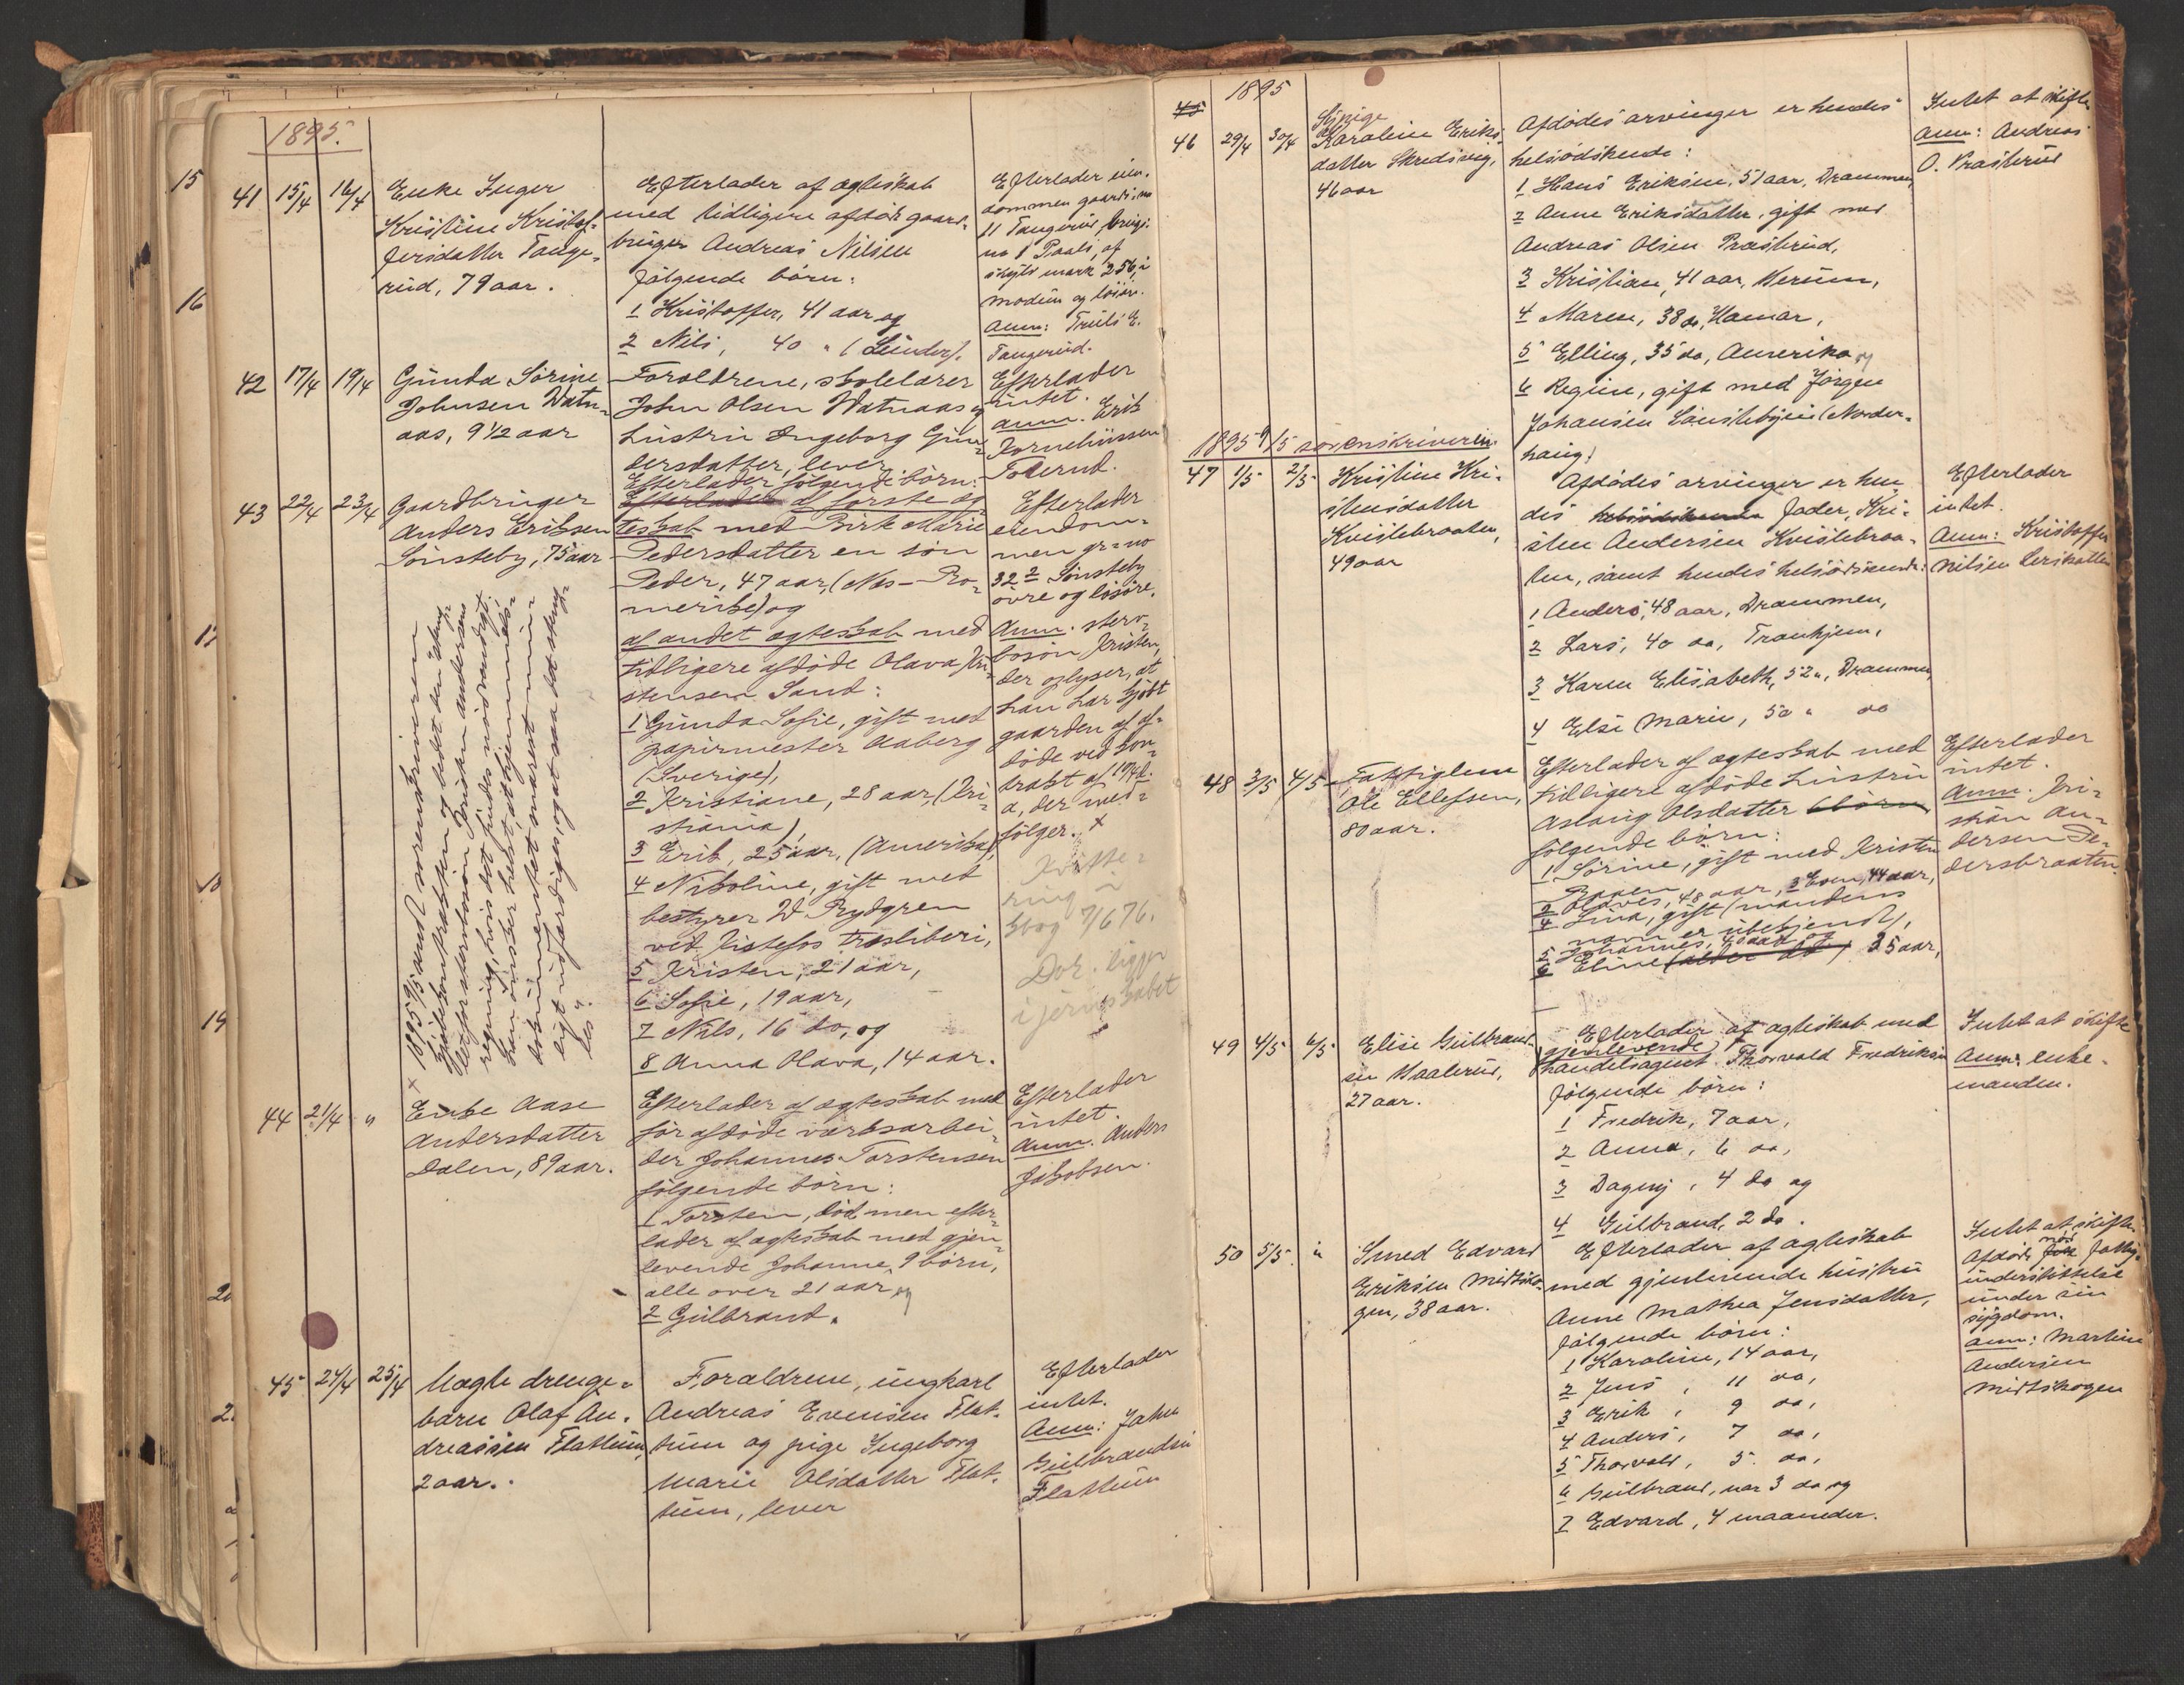 1895.
41 15/4 16/4 Enke Inger
Kristine Kristof-
fersdatter Tange-
rud, 79 aar.
Efterlader af ægteskab
med tidligere afdøde gaard-
bruger Andreas Nilsen
følgende børn:
1 Kristoffer, 41 aar og
2 Nils, 40 " (Lunder).
Efterlader eien-
dommen gaards-no
11 Tangerud, brugs-
no 1 Paals, af
skyld mark 2 56, i
Modum og løsøre.
Anm: Truls E.
Tangerud.
42 17/4 19/4 Gunda Sørine
Johnsen Watn-
aas, 9 1/2 aar
Forældrene, skolelærer
John Olsen Watnaas og
hustru Ingeborg Gun-
dersdatter, lever
Efterlader
intet.
Anm. Erik
Korneliussen
43 22/4 23/4 Gaardbruger
Anders Eriksen
Sønsteby, 75 aar
Efterlader følgende børn:
Efterlader af første æg-
teskab med Birte Marie
Pedersdatter en søn
Peder, 47 aar, (Nes - Ro-
merike) og
af andet ægteskab med
tidligere afdøde Olava Kri-
stensen Sand:
1 Gunda Sofie, gift med
papirmester Aaberg
(Sverige),
2 Kristiane, 28 aar, (Kri-
stiania),
3 Erik, 25 aar, (Amerika),
4 Nikoline, gift med
bestyrer W Rydgren
ved Kistefos træsliberi,
5 Kristen, 21 aar,
6 Sofie, 19 aar,
7 Nils, 16 do, og
8 Anna Olava, 14 aar.
Efterlader
eiendom-
men gr=no
32 2 Sønsteby
øvre og løsøre.
Anm. sterv-
bosøn Kristen,
der oplyser, at
han har kjøbt
gaarden af af-
døde ved kon-
trakt af 19/4 d.
a, der med-
følger. +
ring i
skog 7/6 76.
Dok. ligger
i jernskabet
+ 1895 9/5 sendt sorenskriveren
kjøbekontrakten og bedet den
for stervbosøn Kristen Andersens
regning, hvis det findes nødvendigt.
44 21/4 " Enke Aase
Andersdatter
Dalen, 89 aar.
Efterlader af ægteskab med
før afdøde værksarbei-
der Johannes Torstensen
følgende børn:
1 Torsten, død men efter-
lader af ægteskab med gjen-
levende Johanne, 9 børn,
alle over 21 aar og
2 Gulbrand.
Efterlader
intet.
Anm. Anders
Jakobsen.
45 24/4 25/4 Uægte drenge-
barn Olaf An-
dreassen Flattum,
2 aar.
Forældrene, ungkarl
Andreas Evensen Flat-
tum og pige Ingeborg
Marie Olsdatter Flat-
tum, lever
Efterlader
intet.
Anm: Johan
Gulbrandsen
Flattum
15
16
17
18
19
1895
45
46 29/4 30/4 Pige
Karoline Eriks-
datter Skredsvig,
46 aar
Afdødes arvinger er hendes
helsødskende:
1 Hans Eriksen, 51 aar, Drammen,
2 Anne Eriksdatter, gift med
Andreas Olsen Præsterud,
3 Kristian, 41 aar, Værum,
4 Maren, 38 do, Hamar,
5 Elling, 35 do, Amerika og
6 Regine, gift med Jørgen
Johansen Lønstebøien (Norder-
haug)
Intet at skifte
Anm: Andreas
O. Præsterud
1895 9/5 sorenskriveren
47 1/5 2/5 Kristine Kri-
stensdatter
Kvislebraaten,
49 aar
Afdødes arvinger er hen-
des helsødskende fader, Kri-
sten Andersen Kvislebraa-
ten, samt hendes helsødskende:
1 Anders, 48 aar, Drammen,
2 Lars, 40 do, Tronhjem,
3 Karen Elisabeth, 52 ", Drammen
4 Else Marie, 50 " do
Efterlader
intet.
Anm: Kristoffer
Nilsen
48 3/5 4/5 Fattiglem
Ole Ellefsen,
80 aar.
Efterlader af ægteskab med
tidligere afdøde hustru
Aslaug Olsdatter 6 børn
følgende børn:
1 Sørine, gift med Kristen
Braaen
2 Olaves, 48 aar, 3 Even, 44 aar,
4 Lina, gift (mandens
navn er ubekjendt),
5 Johannes,
6 Eline (alder do) 35 aar,
Efterlader
intet.
Anm. Kri-
stian An-
dersen Pe-
dersbraaten.
49 4/5 6/5 Elise Gulbrand-
sen Haalerud,
27 aar.
Efterlader af ægteskab med
gjenlevende
handelsagent Thorvald Fredriksen
følgende børn:
1 Fredrik, 7 aar,
2 Anna, 6 do,
3 Dagny, 4 do og
4 Gulbrand, 2 do.
Intet at skifte
Anm: enke-
manden.
50 5/5 " Smed Edvard
Eriksen Midtsko-
gen, 38 aar.
Efterlader af ægteskab
med gjenlevende hustru
Anne Mathea Jensdatter,
følgende børn:
1 Karoline, 14 aar,
2 Jens, 11 do,
3 Erik, 9 do,
4 Anders, 7 do,
5 Thorvald, 5 do,
6 Gulbrand, 3 do og
7 Edvard, 4 maaneder.
Intet at skifte
Afdøde nød fattig-
understøttelse
under sin
sygdom.
Anm: Martin
Andersen
Midtskogen